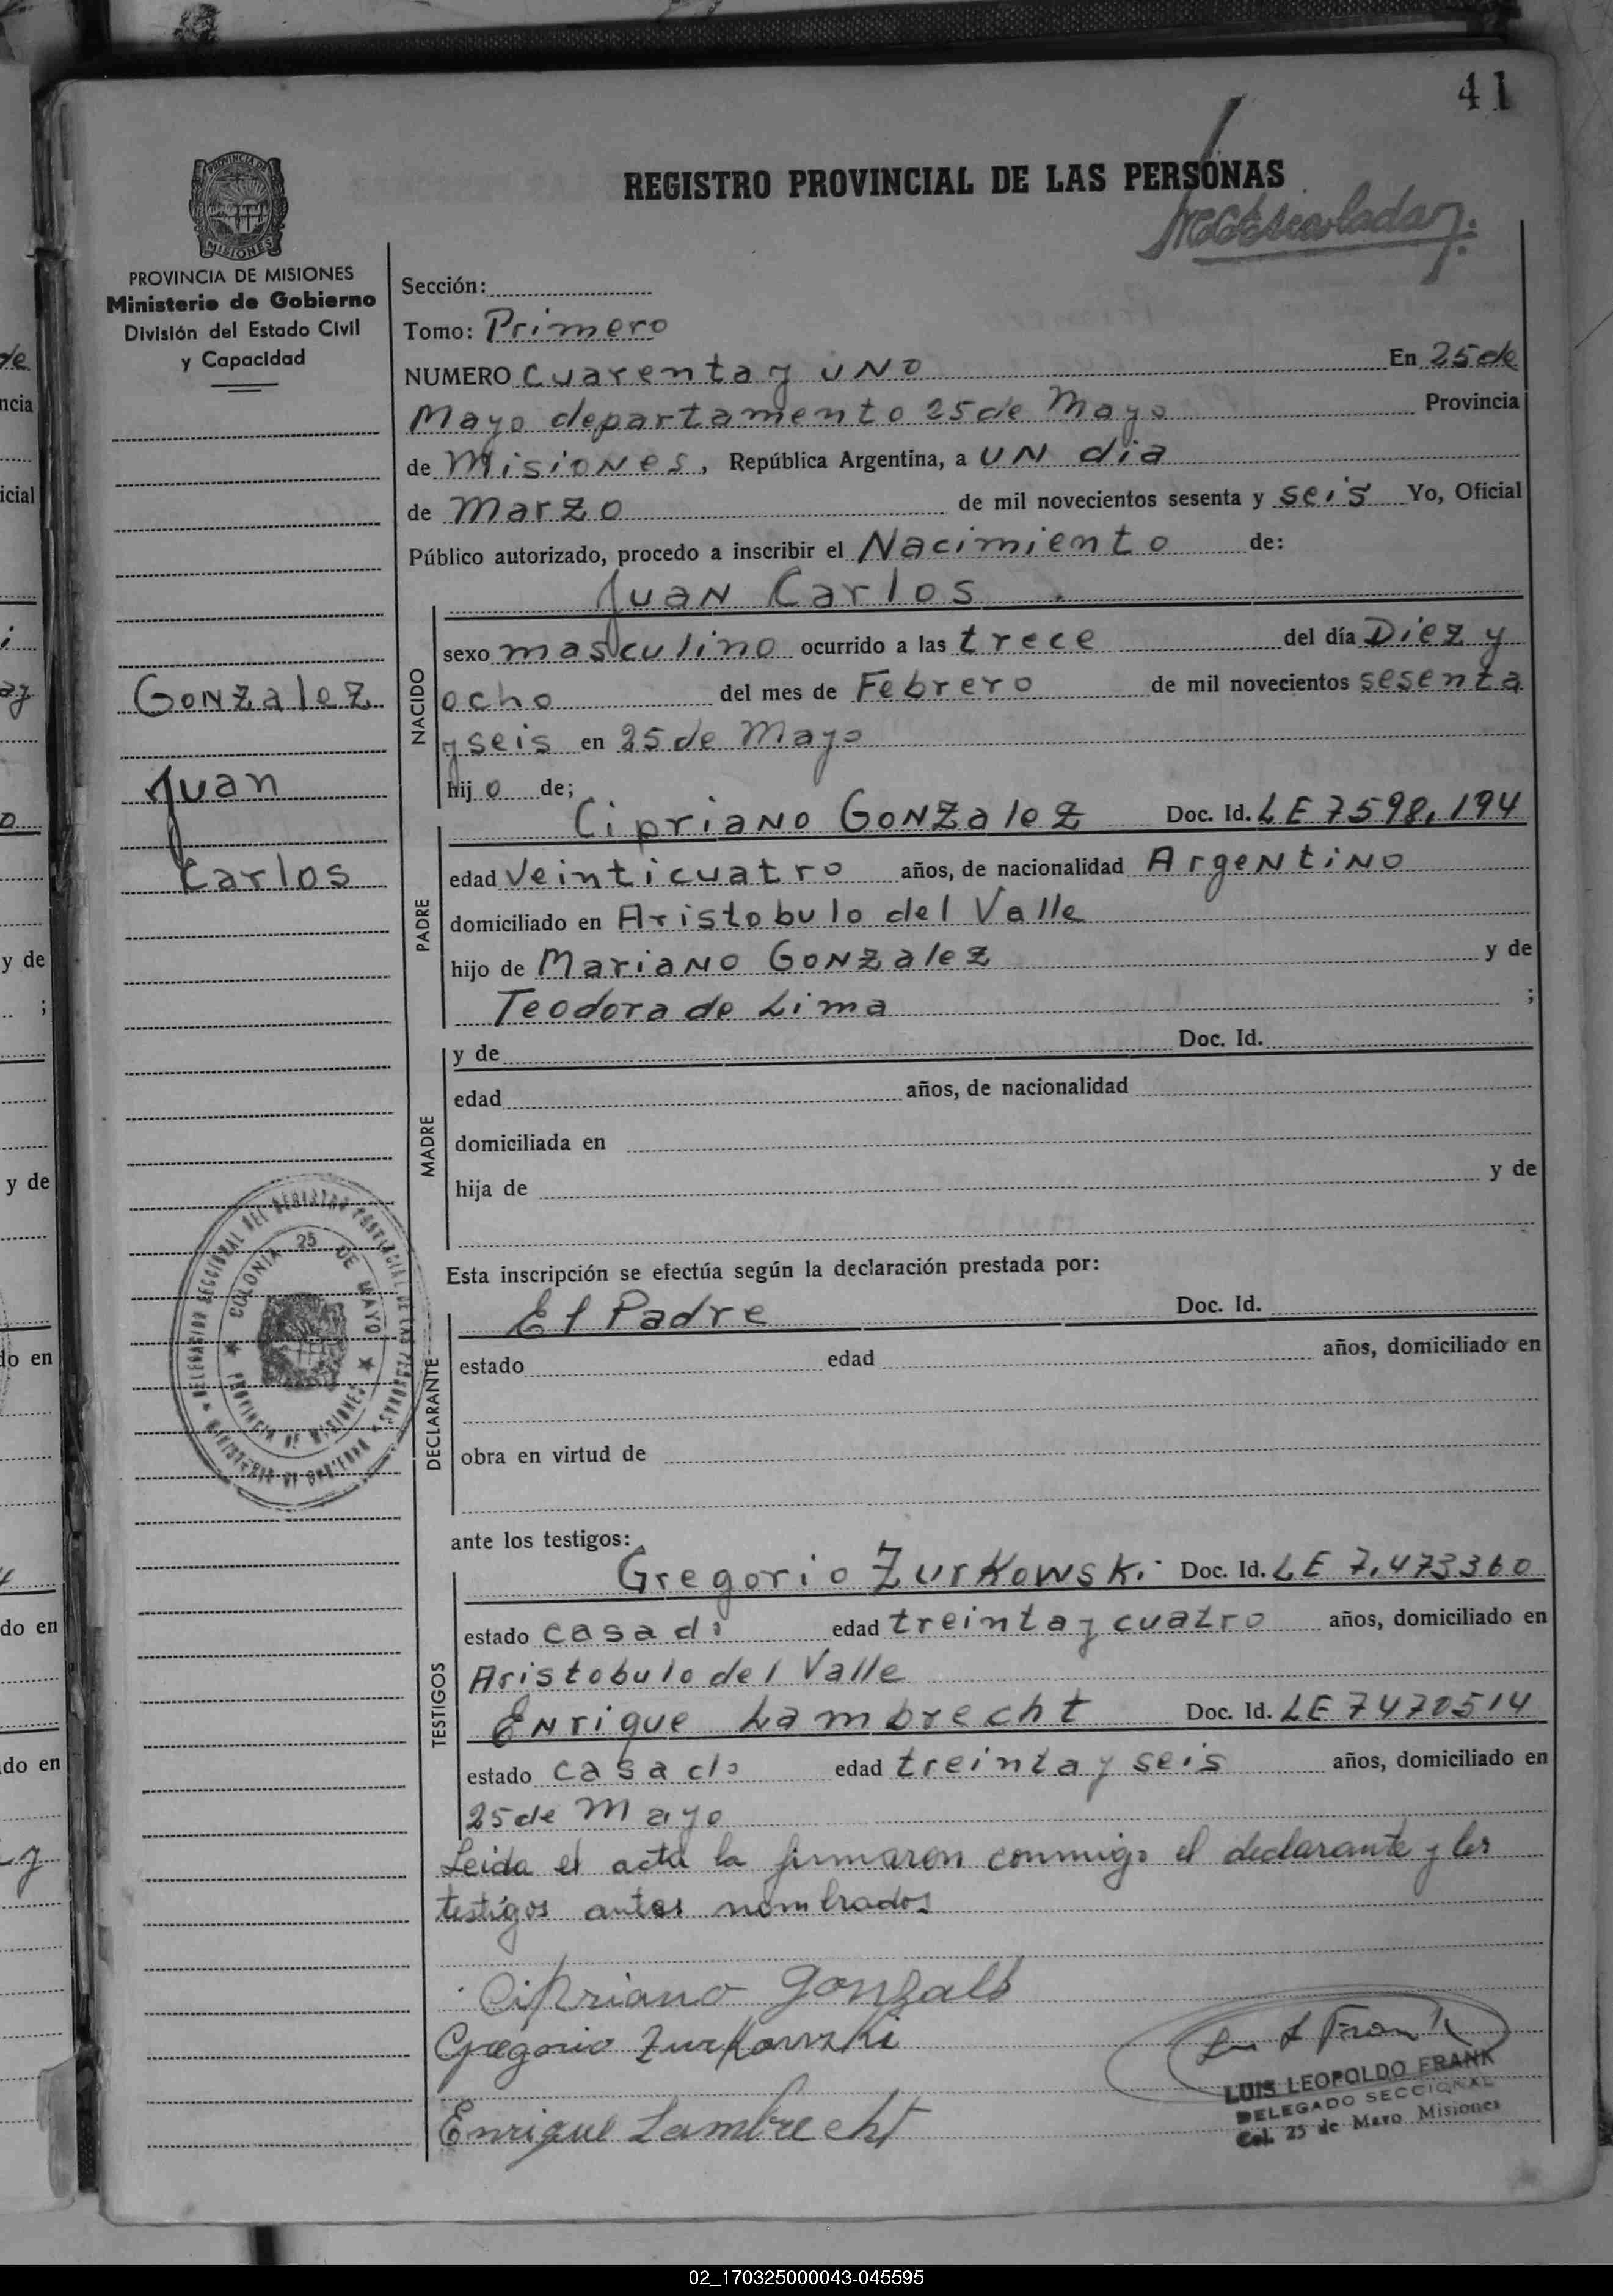 41
REGISTRO PROVINCIAL DE LAS PERSONAS
PROVINCIA DE MISIONES
Ministerio de Gobierno
División del Estado Civil
y Capacidad
Gonzalez
Juan
Carlos
Sección:
Tomo: Primero
NUMERO cuarenta y uno En 25 de
Mayo departamento 25 de Mayo Provincia
de Misiones, República Argentina, a un dia
de Marzo de mil novecientos sesenta y seis Yo, Oficial
Público autorizado, procedo a inscribir el Nacimiento de:
Juan Carlos
NACIDO
sexo masculino ocurrido a las trece del día Diez y
ocho del mes de Febrero de mil novecientos sesenta
y seis en 25 de Mayo
hijo de;
PADRE
Cipriano Gonzalez Doc. Id. LE 7598,194
edad veinticuatro años, de nacionalidad Argentino
domiciliado en Aristobulo del Valle
hijo de Mariano Gonzalez y de
Teodora de Lima ;
MADRE
y de Doc. Id.
edad años, de nacionalidad
domiciliada en
hija de y de
Esta inscripción se efectúa según la declaración prestada por:
DECLARANTE
El Padre Doc. Id.
estado edad años, domiciliado en
obra en virtud de
ante los testigos:
TESTIGOS
Gregorio Zurkowski Doc. Id. LE 7.473360
estado casado edad treinta y cuatro años, domiciliado en
Aristobulo del Valle
Enrique Lambrecht Doc. Id. LE 7470514
estado casado edad treinta y seis años, domiciliado en
25 de Mayo
Leida el acta la firmaron conmigo el declarante y los
testigos antes nombrados
Cipriano Gonzalez
Gregorio Zurkowski
Enrique Lambrecht
LUIS LEOPOLDO FRANK
DELEGADO SECCIONAL
Col. 25 de Mayo Misiones
DELEGACION SECCIONAL DEL REGISTRO PROVINCIAL DE LAS PERSONAS
MINISTERIO DE GOBIERNO
COLONIA 25 DE MAYO
PROVINCIA DE MISIONES
02_170325000043-045595